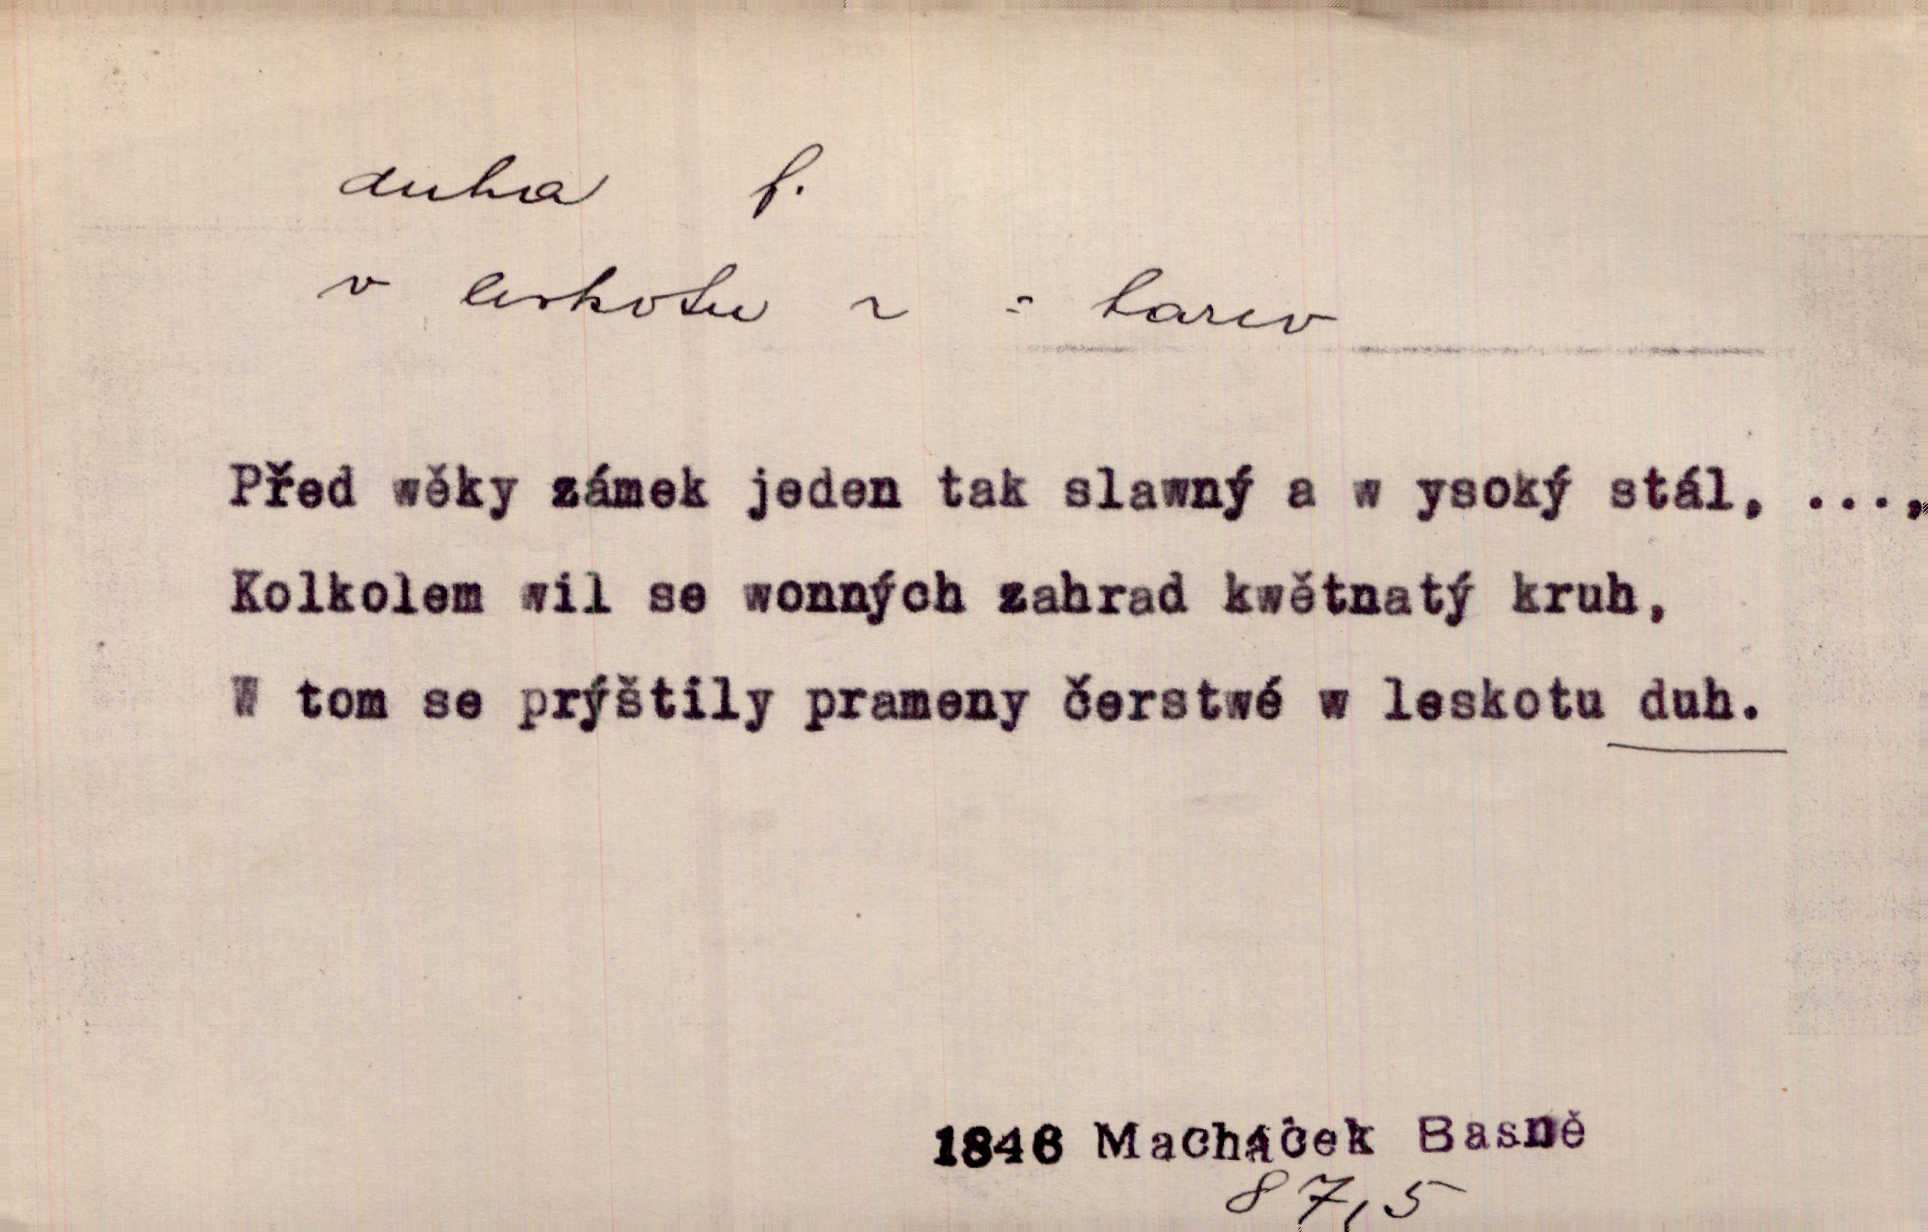 duha f.
v leskotu ~ = barev
Před wěky zámek jeden tak slawný a w ysoký stál, ...,
Kolkolem wil se wonných zahrad kwětnatý kruh,
W tom se prýštily prameny čerstwé w leskotu duh.
1846 Macháček Basně
87,5